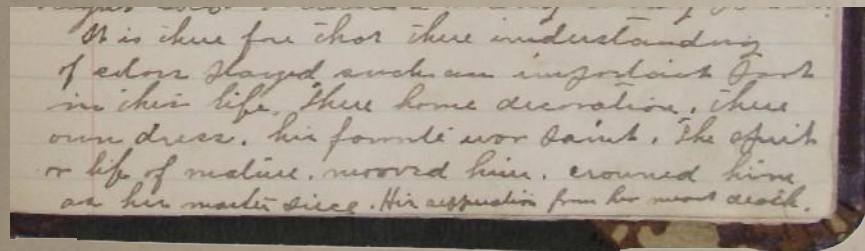 It is there for that there understanding
of colors played such an important part
in their life. There home decoration, there
own dress. his favorite war paint. The spirit
or life of nature. mooved him. crowned him
as her master piece. His seperation from her meant death.